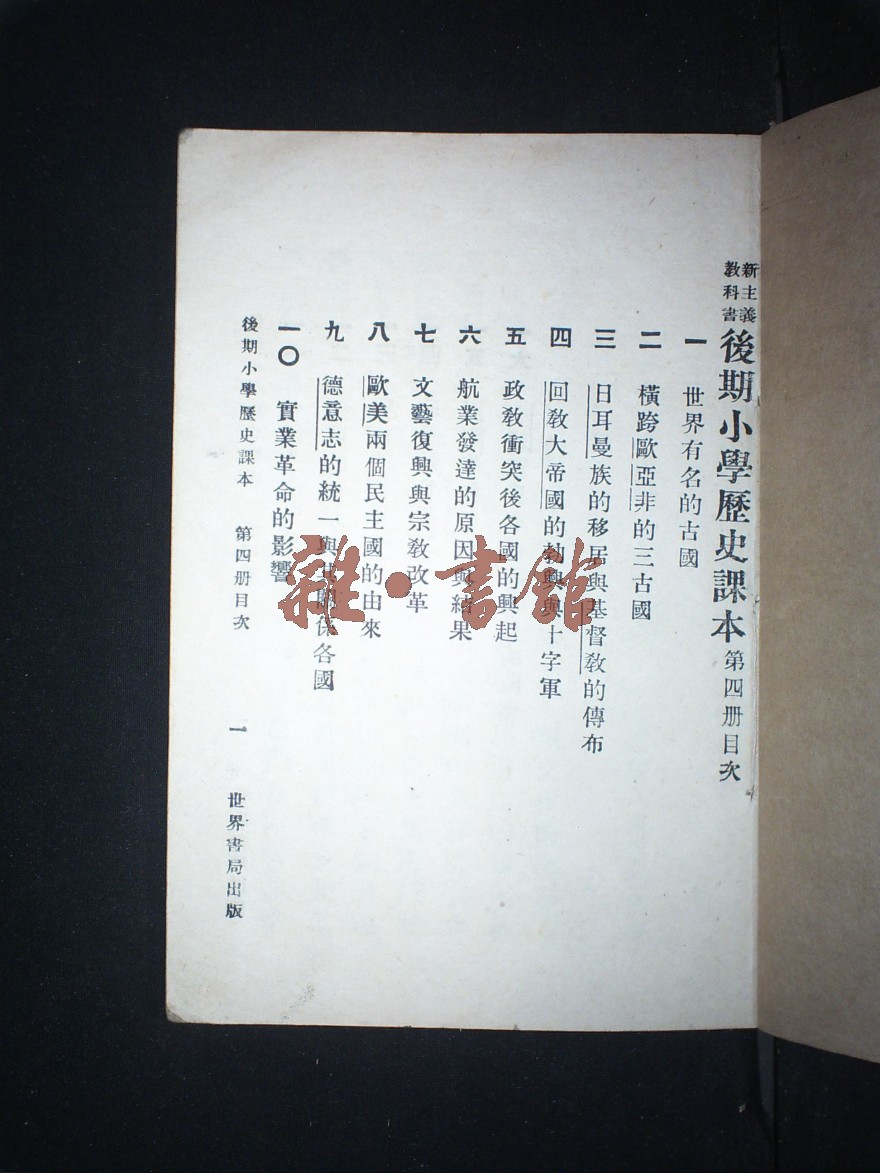 新主義
教科書
後期小學歷史課本 第四册目次
一 世界有名的古國
二 橫跨歐亞非的三古國
三 日耳曼族的移居與基督教的傳布
四 回教大帝國的勃興與十字軍
五 政教衝突後各國的興起
六 航業發達的原因與結果
七 文藝復興與宗教改革
八 歐美兩個民主國的由來
九 德意志的統一與其關係各國
一〇 實業革命的影響
後期小學歷史課本 第四册目次 一 世界書局出版
雜·書館